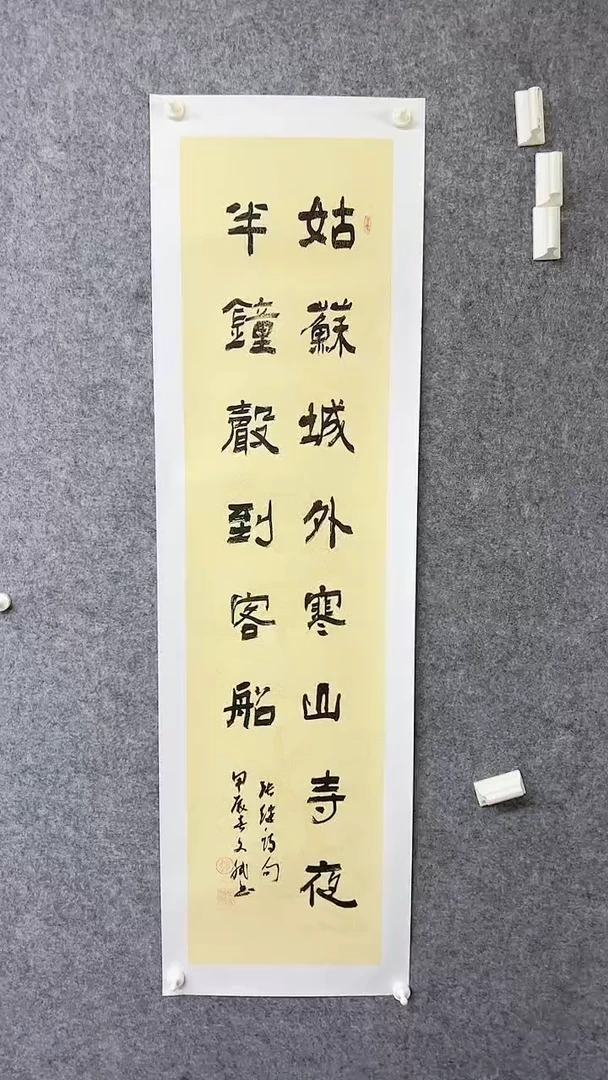 姑蘇城外寒山寺夜
半鐘聲到客船
張繼詩句
甲辰春文斌書